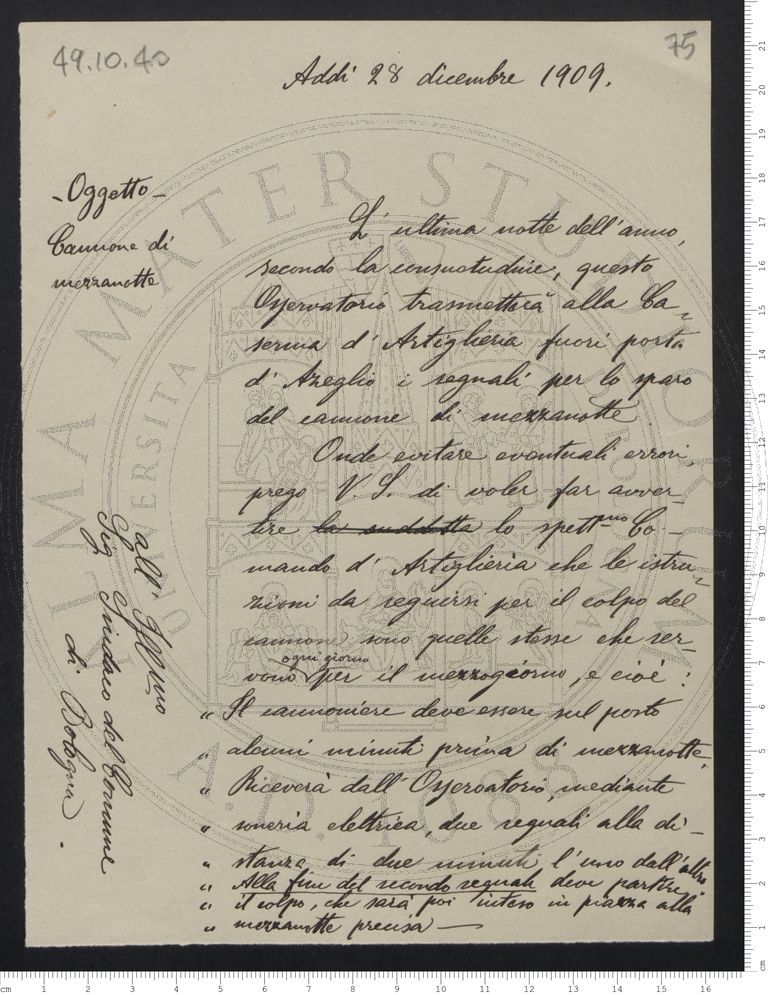 49.10.40
75
Addì 28 dicembre 1909.
- Oggetto -
Cannone di
mezzanotte
L'ultima notte dell'anno,
secondo la consuetudine, questo
Osservatorio trasmetterà alla Ca-
serma d'Artiglieria fuori porta
d'Azeglio i segnali per lo sparo
del cannone di mezzanotte.
Onde evitare eventuali errori,
prego V. S. di voler far avver-
tire la suddetta lo spettmo Co-
mando d'Artiglieria che le istru-
zioni da seguirsi per il colpo del
cannone sono quelle stesse che ser-
ogni giorno
vono per il mezzogiorno, e cioè:
" Il cannoniere deve essere sul posto
" alcuni minuti prima di mezzanotte.
" Riceverà dall'Osservatorio, mediante
" soneria elettrica, due segnali alla di-
" stanza di due minuti l'uno dall'altro
" Alla fine del secondo segnale deve partire
" il colpo, che sarà poi inteso in piazza alla
" mezzanotte precisa —
all'Illmo
Sig Sindaco del Comune
di Bologna.
ALMA MATER STUDIORUM
UNIVERSITÀ
A.D. 1088
cm
1 2 3 4 5 6 7 8 9 10 11 12 13 14 15 16
cm
1 2 3 4 5 6 7 8 9 10 11 12 13 14 15 16 17 18 19 20 21